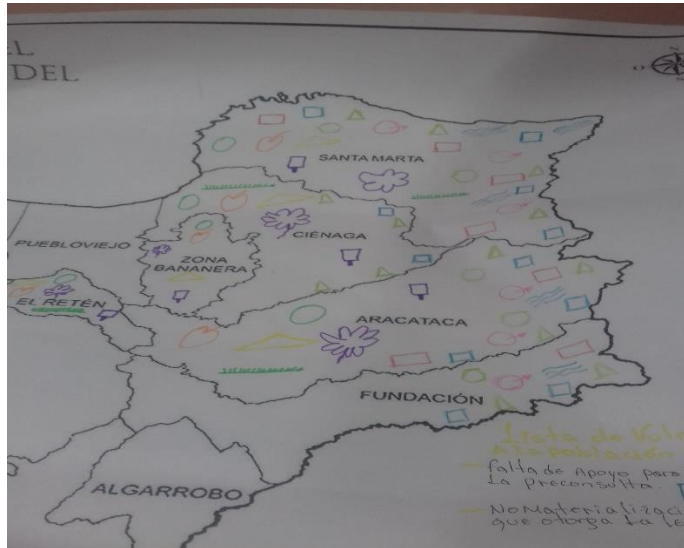 EL
DEL
O
SANTA MARTA
CIÉNAGA
PUEBLOVIEJO
ZONA
BANANERA
EL RETÉN
ARACATACA
FUNDACIÓN
ALGARROBO
Lista de
A la población
- falta de Apoyo para
La preconsulta.
- No Materializaci
que otorga La le